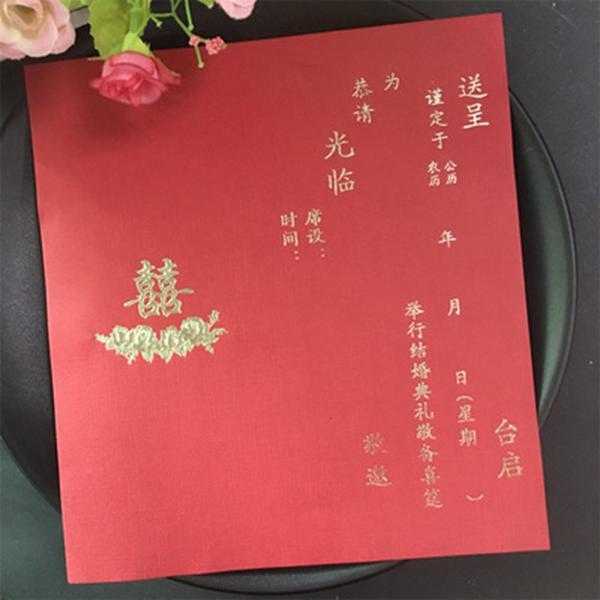 送呈 台启
谨定于 公历 年 月 日(星期 )
农历
为 举行结婚典礼敬备喜筵
恭请 敬邀
光临
席设:
时间:
囍